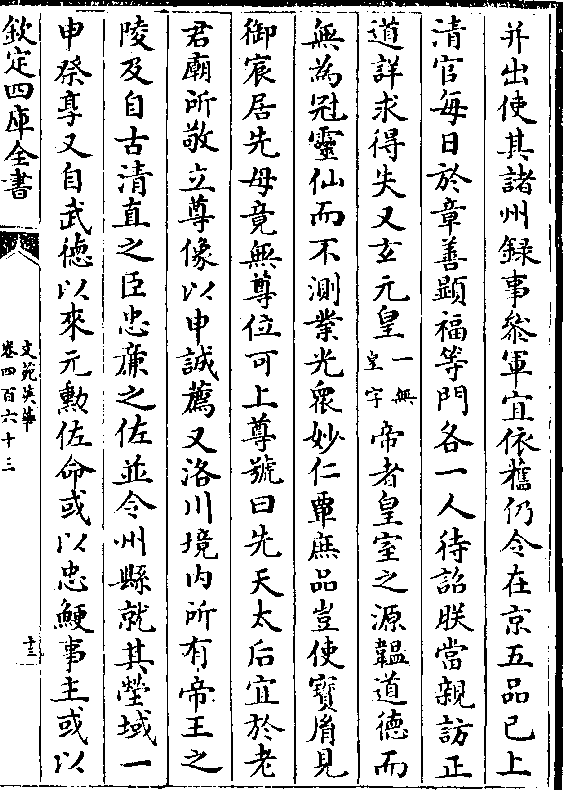 并出使其諸州録事叅軍宜依舊仍令在京五品已上
清官每日於章善顯福等門各一人待詔朕當親訪正
道詳求得失又玄元皇一無皇字帝者皇室之源韞道德而
無為冠靈仙而不測業光衆妙仁覃庶品豈使寳胤見
御宸居先母竟無尊位可上尊號曰先天太后宜於老
君廟所敬立尊像以申誠薦又洛川境内所有帝王之
陵及自古清直之臣忠亷之佐並令州縣就其塋域一
申祭享又自武德以來元勲佐命或以忠鯁事主或以
欽定四庫全書
文苑英華
卷四百六十三
十三